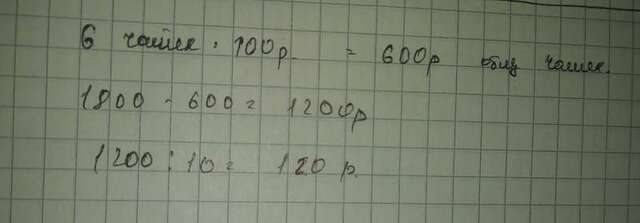 6 чашек · 100р. = 600р чашек.
1800 - 600 = 1200р
1200 : 10 = 120 р.